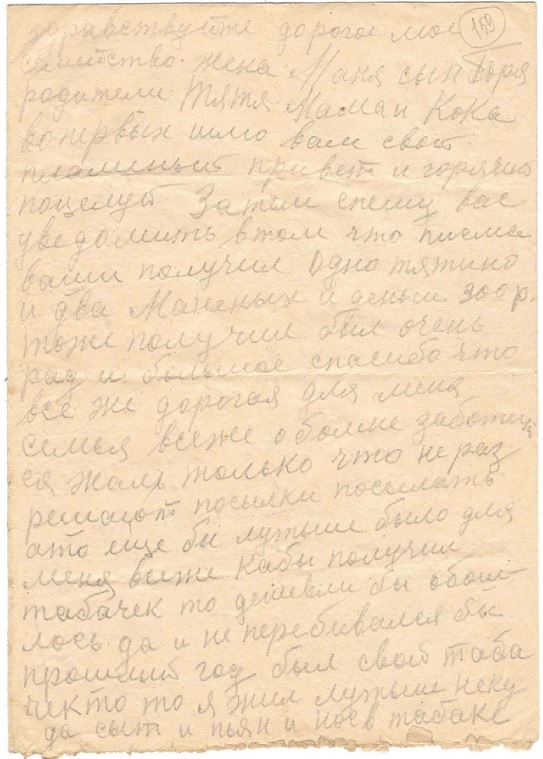 159
здравствуйте дорогое мое
семейство жена Маня сын Боря
родители Тятя Маман Кока
вопервых шлю вам свой
пламеный привет и горячий
поцелуй Затем спешу вас
уведомить в том что писма
ваши получил одно тятино
и два Маненых и деньги 300 р.
тоже получил был очень
рад и большое спасибо что
все же дорогая для меня
семья всеже обомне заботит
ся жаль только что не раз
решают посылки посылать
ато еще бы лутьше было для
меня всеже кабы получил
табачек то дешевли бы обош
лось да и не перебивался бы
прошлый год был свой таба
чек то то я жил лутьше неку
да сыт и пьян и нос в табаке